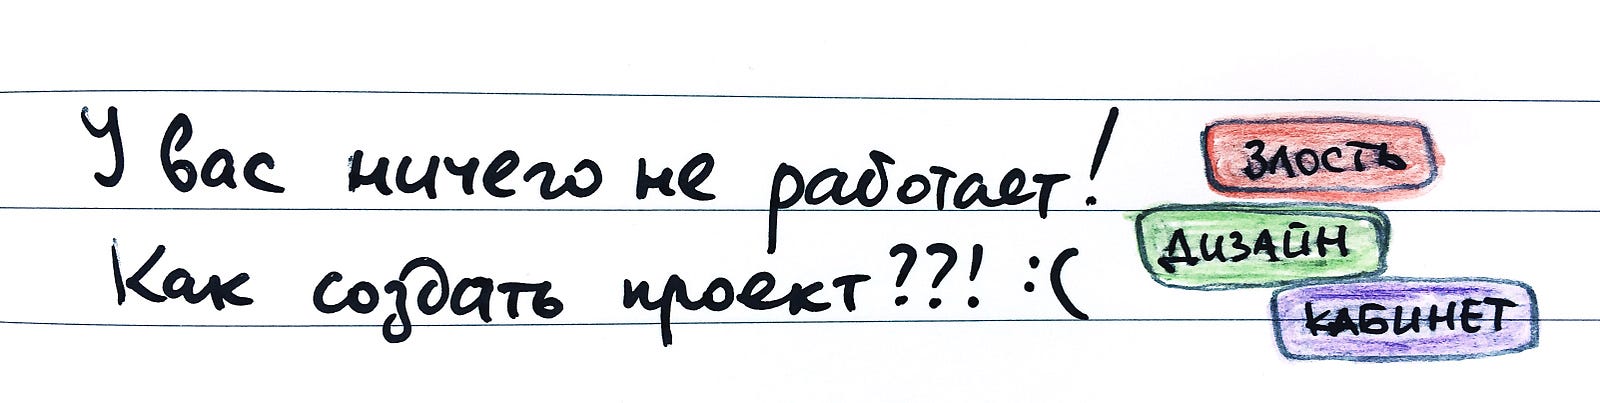 У вас ничего не работает!
Как создать проект??! :(
ЗЛОСТЬ
ДИЗАЙН
КАБИНЕТ